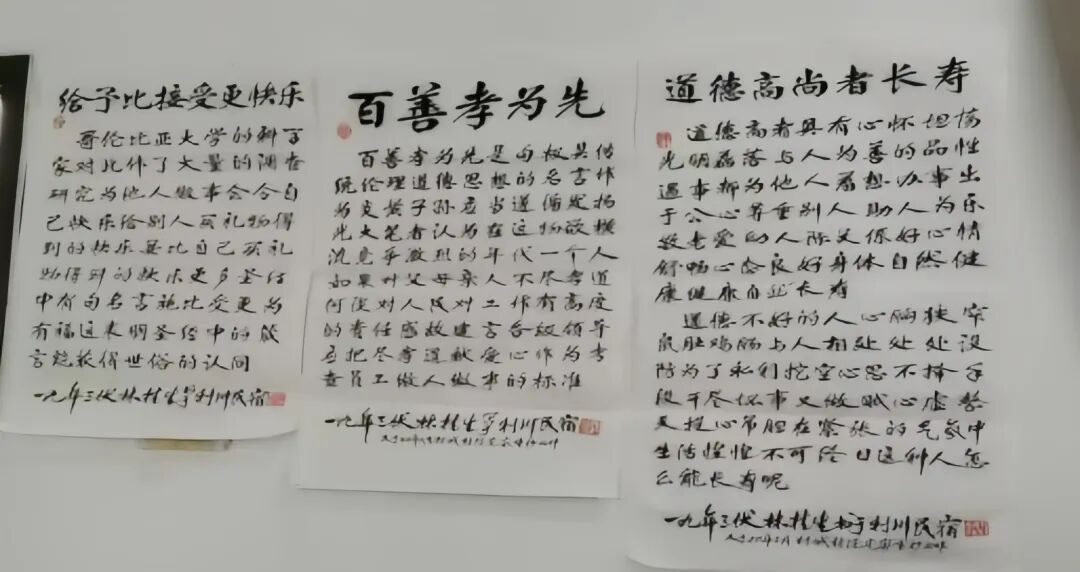 给予比接受更快乐
哥伦比亚大学的科学
家对此作了大量的调查
研究为他人做事会令自
己快乐给别人买礼物得
到的快乐要比自己买礼
物得到的快乐更多圣经
中有句名言施比受更为
有福这表明圣经中的箴
言能获得世俗的认同
一九年三伏林桂生写利川民宿
百善孝为先
百善孝为先是句极具传
统伦理道德思想的名言作
为炎黄子孙应当遵循发扬
光大笔者认为在这物欲横
流竞争激烈的年代一个人
如果对父母亲人不尽孝道
何谈对人民对工作有高度
的责任感故建言各级领导
应把尽孝道献爱心作为考
查员工做人做事的标准
一九年三伏林桂生写利川民宿
道德高尚者长寿
道德高者具有心怀坦荡
光明磊落与人为善的品性
遇事都为他人着想办事出
于公心尊重别人助人为乐
敬老爱幼人际关系好心情
舒畅心态良好身体自然健
康健康自然长寿
道德不好的人心胸狭窄
鼠肚鸡肠与人相处处处设
防为了私利挖空心思不择手
段干尽坏事又做贼心虚整
天提心吊胆在紧张的气氛中
生活惶惶不可终日这种人怎
么能长寿呢
一九年三伏林桂生书于利川民宿